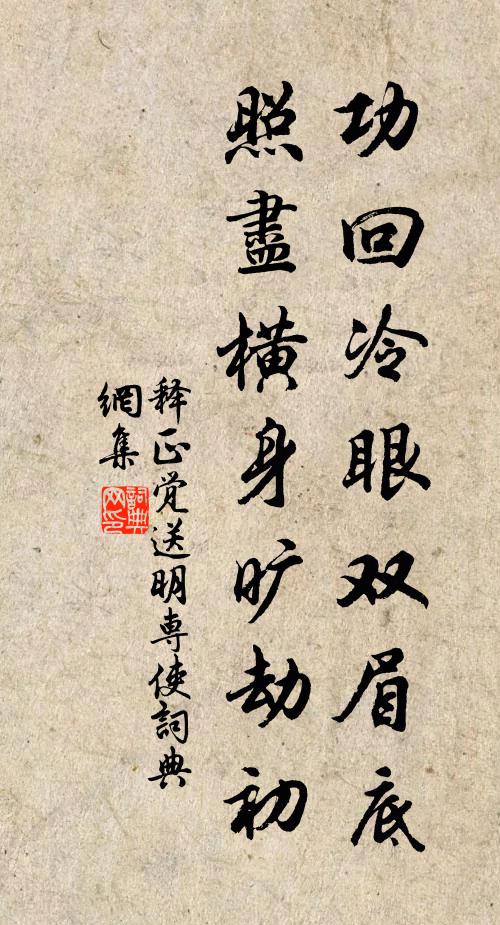 功回冷眼双眉底
照盡橫身旷劫初
释正觉送明専使詞典
網集
詞典
网印